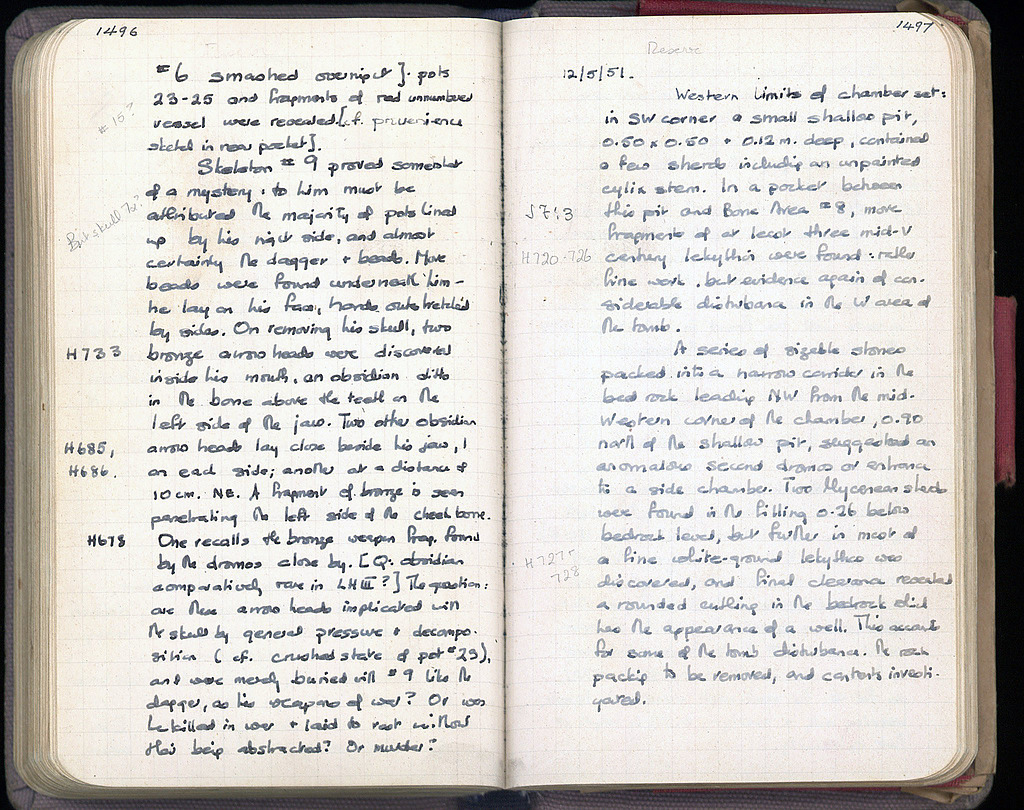 1496
#6 smashed overnight]. pots
23-25 and fragments of red unnumbered
vessel were revealed [cf. provenience
sketch in rear pocket].
# 15?
Skeleton #9 proved somewhat
of a mystery: to him must be
attributed the majority of pots lined
up by his right side, and almost
certainly the dagger + beads. More
beads were found underneath him -
he lay on his face, hands outstretched
by sides. On removing his skull, two
H733
bronze arrow heads were discovered
inside his mouth, an obsidian ditto
in the bone above the teeth on the
left side of the jaw. Two other obsidian
H685,
H686.
arrow heads lay close beside his jaw, 1
on each side; another at a distance of
10 cm. NE. A fragment of bronze is seen
penetrating the left side of the cheek bone.
H678
One recalls the bronze weapon frag. found
by the dromos close by. [Q: obsidian
comparatively rare in LH III?] The question:
are these arrow heads implicated with
the skull by general pressure + decompo-
sition (cf. crushed state of pot #29),
and were merely buried with #9 like the
dagger, as his weapons of war? Or was
he killed in war + laid to rest without
their being abstracted? Or murder?
1497
Reserve
12/5/51.
Western limits of chamber set:
in SW corner a small shallow pit,
0.50 x 0.50 + 0.12 m. deep, contained
a few sherds including an unpainted
cylix stem. In a pocket between
this pit and Bone Area #8, more
fragments of at least three mid-V
H720-726
century lekythoi were found: really
fine work, but evidence again of con-
siderable disturbance in the W area of
the tomb.
A series of sizable stones
packed into a narrow corridor in the
bed rock leading NW from the mid-
Western corner of the chamber, 0.90
north of the shallow pit, suggested an
anomalous second dromos or entrance
to a side chamber. Two Mycenean sherds
were found in the filling 0.26 below
bedrock level, but further in most of
H727-
728
a fine white-ground lekythos was
discovered, and final clearance revealed
a rounded cutting in the bedrock which
has the appearance of a well. This accounts
for some of the tomb disturbance. The rock
packing to be removed, and contents investi-
gated.